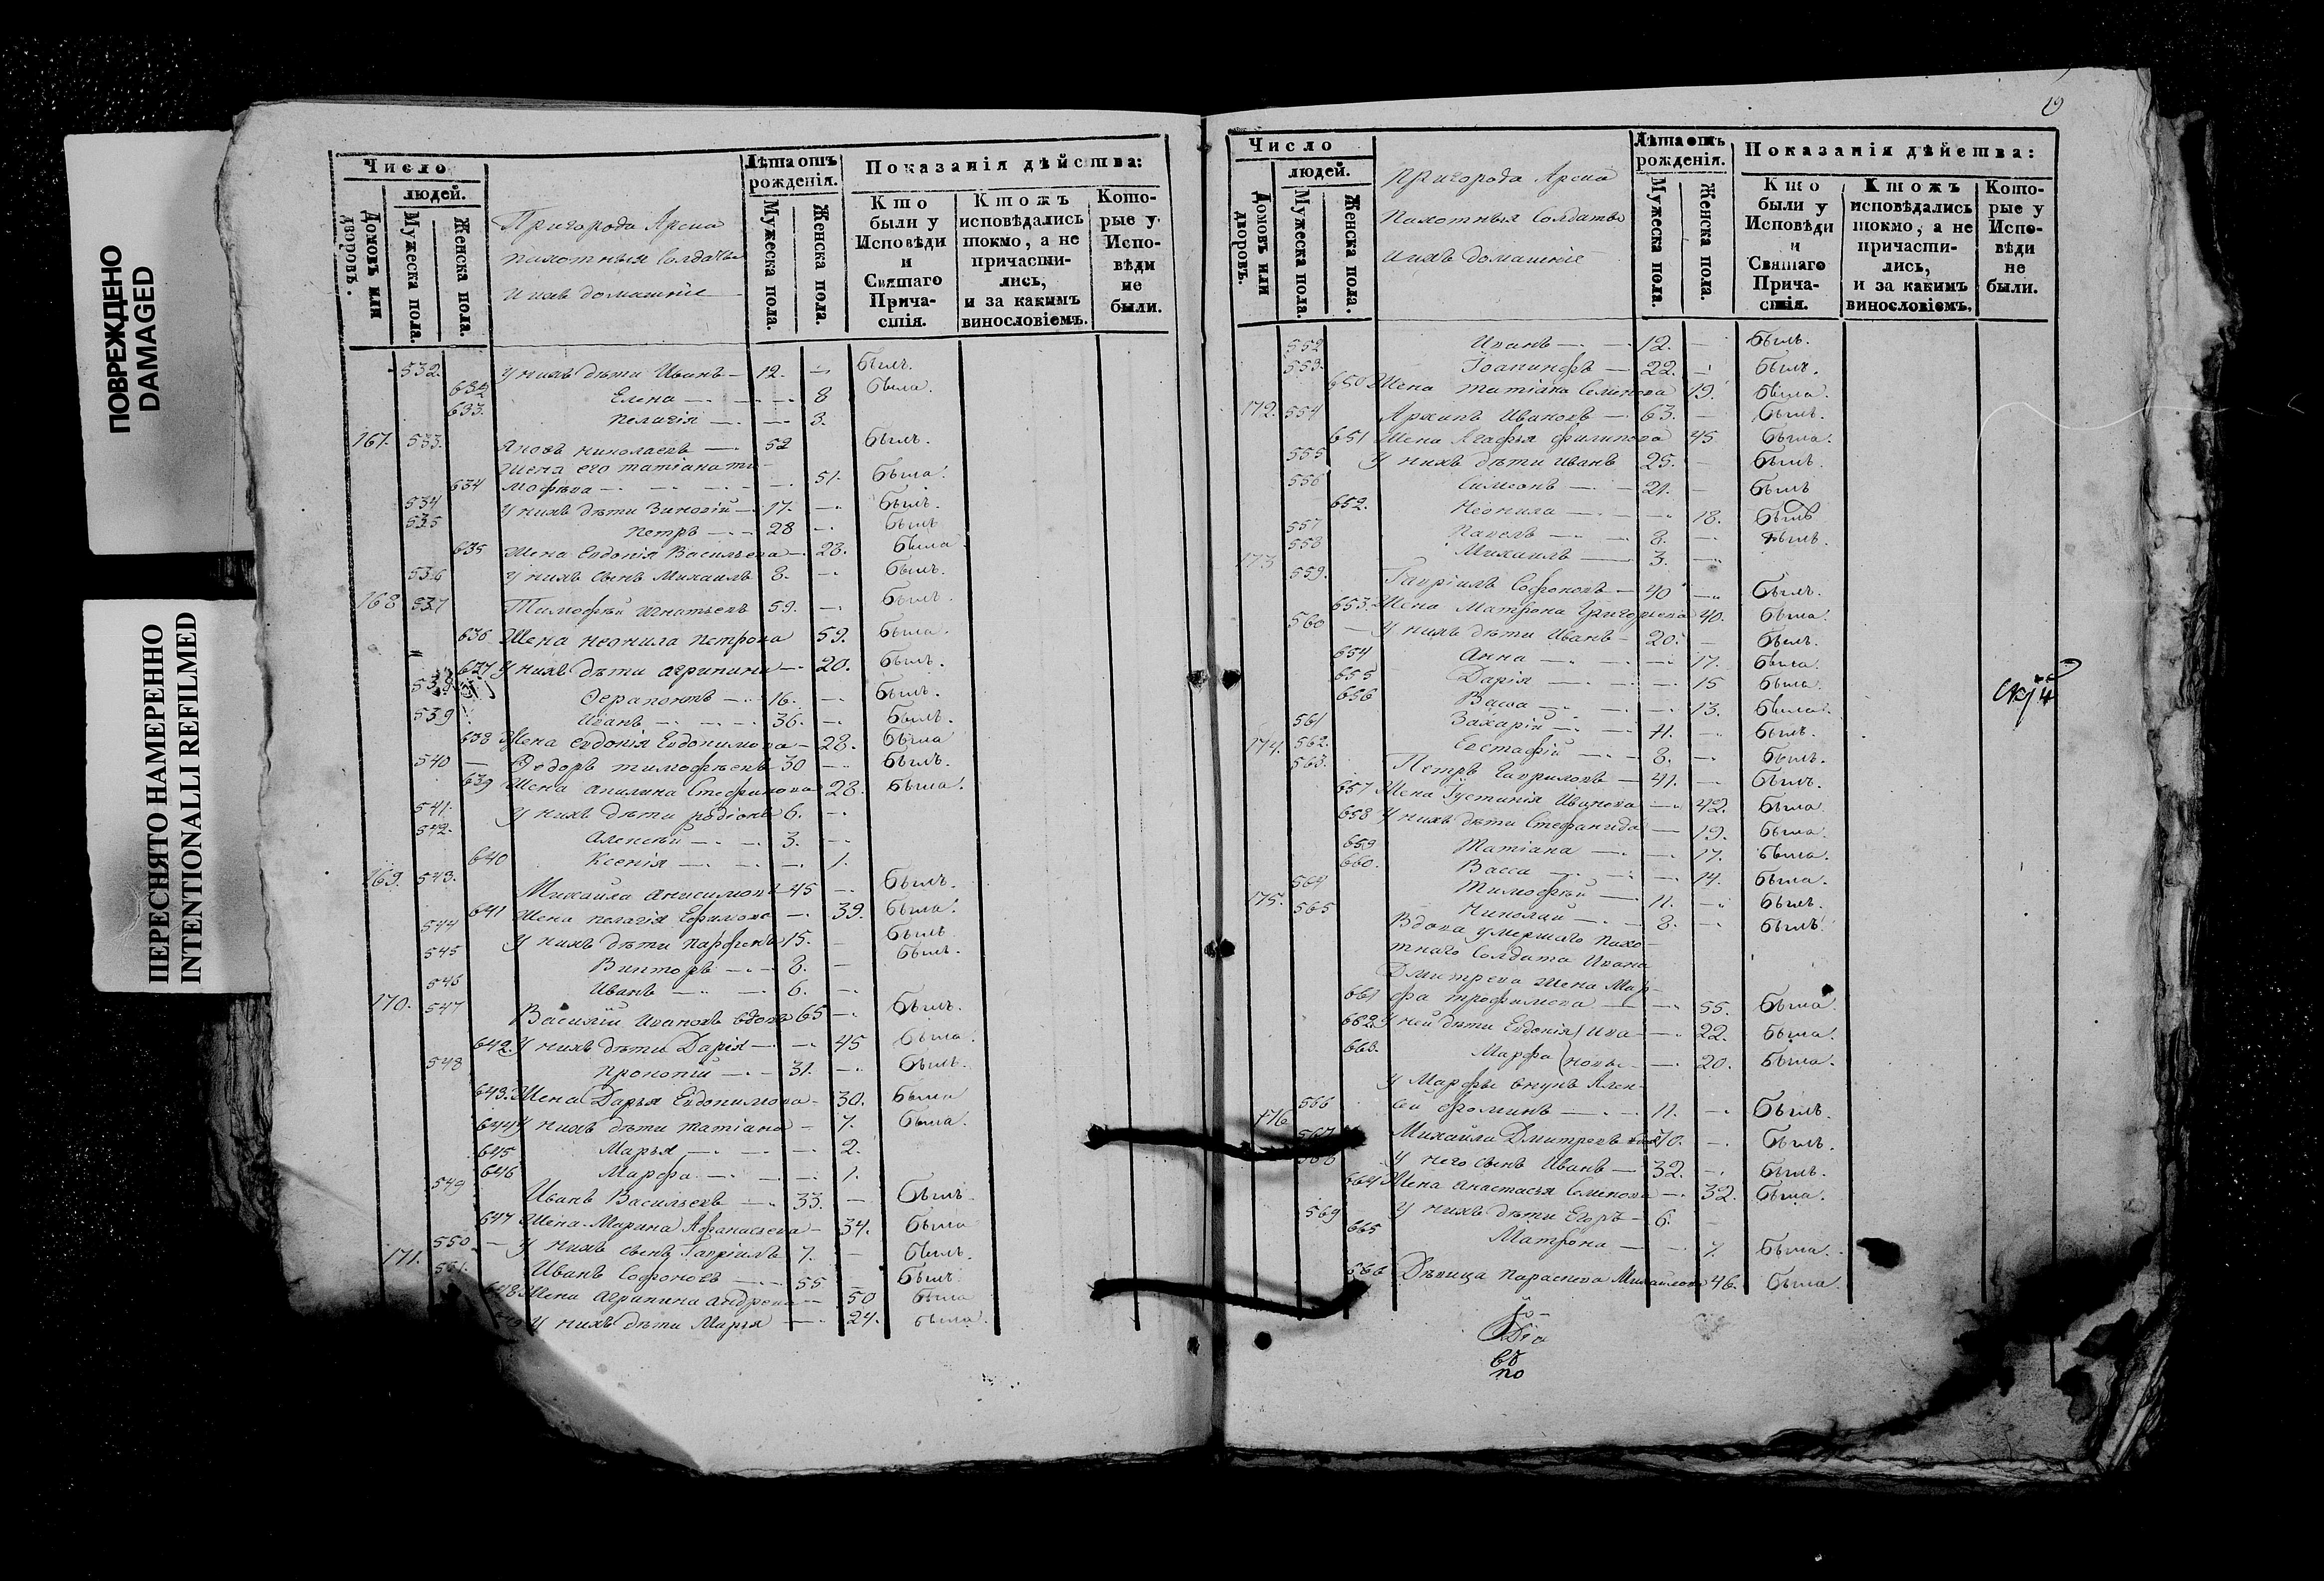 ПОВРЕЖДЕНО
DAMAGED
ПЕРЕСНЯТО НАМЕРЕННО
INTENTIONALLI REFILMED
Число
людей.
Домовъ или дворовъ.
Мужеска пола.
Женска пола.
Пригорода Арска
пахотныя солдаты
и ихъ домашніе
Лѣта отъ рожденія.
Мужеска пола.
Женска пола.
Показанія дѣйства:
Кто были у Исповѣди и Святаго Причастія.
Ктожъ исповѣдались токмо, а не причастились, и за какимъ винословіемъ.
Которые у Исповѣди не были.
532. У нихъ дѣти Иванъ 12. былъ.
632 Елена 8 была.
633. Пелагія 3.
167. 533. Яковъ Николаевъ 52 былъ.
Жена его Татіана Ти-
634 мофѣева 51. была.
534 У нихъ дѣти Зиновій 17. былъ.
535 Петръ 28 былъ
635 Жена Евдокія Васильева 28. была.
536 У нихъ сынъ Михаилъ 8. былъ.
168 537 Тимофѣй Игнатьевъ 59. былъ.
636 Жена Неонила Петрова 59. была.
637 У нихъ дѣти Агрипина 20. былъ.
538 Ферапонтъ 16. былъ.
539 Иванъ 36. былъ.
638 Жена Евдокія Евдокимова 28. была
540 Ѳедоръ Тимофѣевъ 30 былъ.
639 Жена Акилина Стефанова 28. была.
541. У нихъ дѣти Родіонъ 6.
542. Алексѣй 3.
640 Ксенія 1.
169. 543. Михайла Анисимовъ 45 былъ.
641 Жена Пелагія Ефимова 39. была.
544 У нихъ дѣти Парфенъ 15. былъ
545 Викторъ 8. былъ.
546 Иванъ 6.
170. 547 Василій Ивановъ вдовъ 65 былъ.
642. У нихъ дѣти Дарія 45 была.
548 Прокопій 31. былъ.
643. Жена Дарья Евдокимова 30. была
644 У нихъ дѣти Татіана 7. была.
645 Марья 2.
646 Марфа 1.
549 Иванъ Васильевъ 33. былъ.
647 Жена Марина Афанасьева 34. была
550 У нихъ сынъ Гавріилъ 7. былъ.
171. 551. Иванъ Софоновъ 55 былъ
648 Жена Агрипина Андреева 50 была
У нихъ дѣти Марья 24. была.
19
Число
людей.
Домовъ или дворовъ.
Мужеска пола.
Женска пола.
Пригорода Арска
Пахотныя Солдаты
и ихъ домашніе
Лѣта отъ рожденія.
Мужеска пола.
Женска пола.
Показанія дѣйства:
Кто были у Исповѣди и Святаго Причастія.
Ктожъ исповѣдались токмо, а не причастились, и за какимъ винословіемъ.
Которые у Исповѣди не были.
552 Иванъ 12. былъ.
553. Іоакинфъ 22. былъ.
650 Жена Татіана Семенова 19. была.
172. 554 Архипъ Ивановъ 63. былъ.
651 Жена Агафья Филипова 45. была.
555 У нихъ дѣти Иванъ 25. былъ.
556 Симеонъ 21. былъ
652. Неонила 18. былъ
557 Павелъ 8. былъ.
558 Михаилъ 3.
173 559. Гавріилъ Софоновъ 40 былъ.
653. Жена Матрона Григорьева 40. была.
560 У нихъ дѣти Иванъ 20. былъ.
654 Анна 17. была.
655 Дарія 15 была.
656 Васса 13. была.
561 Захарій 11. былъ.
174. 562. Евстафій 8. былъ.
563. Петръ Гавриловъ 41. былъ.
657 Жена Іустинія Иванова 42. была
658 У нихъ дѣти Стефанида 19. была.
659 Татіана 17. была.
660. Васса 14. была.
564 Тимофѣй 11. былъ.
175. 565 Николай 8. былъ.
Вдова умершаго пахо-
тнаго солдата Ивана
Дмитрева жена Мар-
661 фа Трофимова 55. была
662. У ней дѣти Евдокія Ива- 22. была.
663. Марфа новы 20. была.
У Марфы внукъ Алек-
566 сѣй Фоминъ 11. былъ.
176 567 Михайла Дмитревъ 70. былъ.
568 У него сынъ Иванъ 32. былъ.
664 Жена Анастасья Семенова 32. была.
569 У нихъ дѣти Егоръ 6.
665 Матрона 7. была.
566 Дѣвица Параскева Михайлова 46. была.